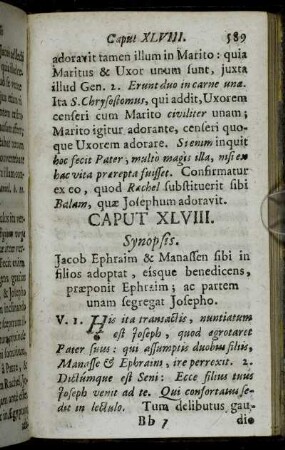 Caput XLVIII. 589
adoravit tamen illum in Marito: quia
Maritus & Uxor unum sunt, juxta
illud Gen. 2. Erunt duo in carne una.
Ita S. Chrysostomus, qui addit, Uxorem
censeri cum Marito civiliter unam;
Marito igitur adorante, censeri quo-
que Uxorem adorare. Si enim inquit
hoc fecit Pater, multo magis illa, nisi ex
hac vita prærepta fuisset. Confirmatur
ex eo, quod Rachel substituerit sibi
Balam, quæ Josephum adoravit.
CAPUT XLVIII.
Synopsis.
Jacob Ephraim & Manassen sibi in
filios adoptat, eisque benedicens,
præponit Ephraim; ac partem
unam segregat Josepho.
V. 1. His ita transactis, nuntiatum
est Joseph, quod ægrotaret
Pater suus: qui assumptis duobus filiis,
Manasse & Ephraim, ire perrexit. 2.
Dictumque est Seni: Ecce filius tuus
Joseph venit ad te. Qui confortatus se-
dit in lectulo. Tum delibutus gau-
Bb 7 dio